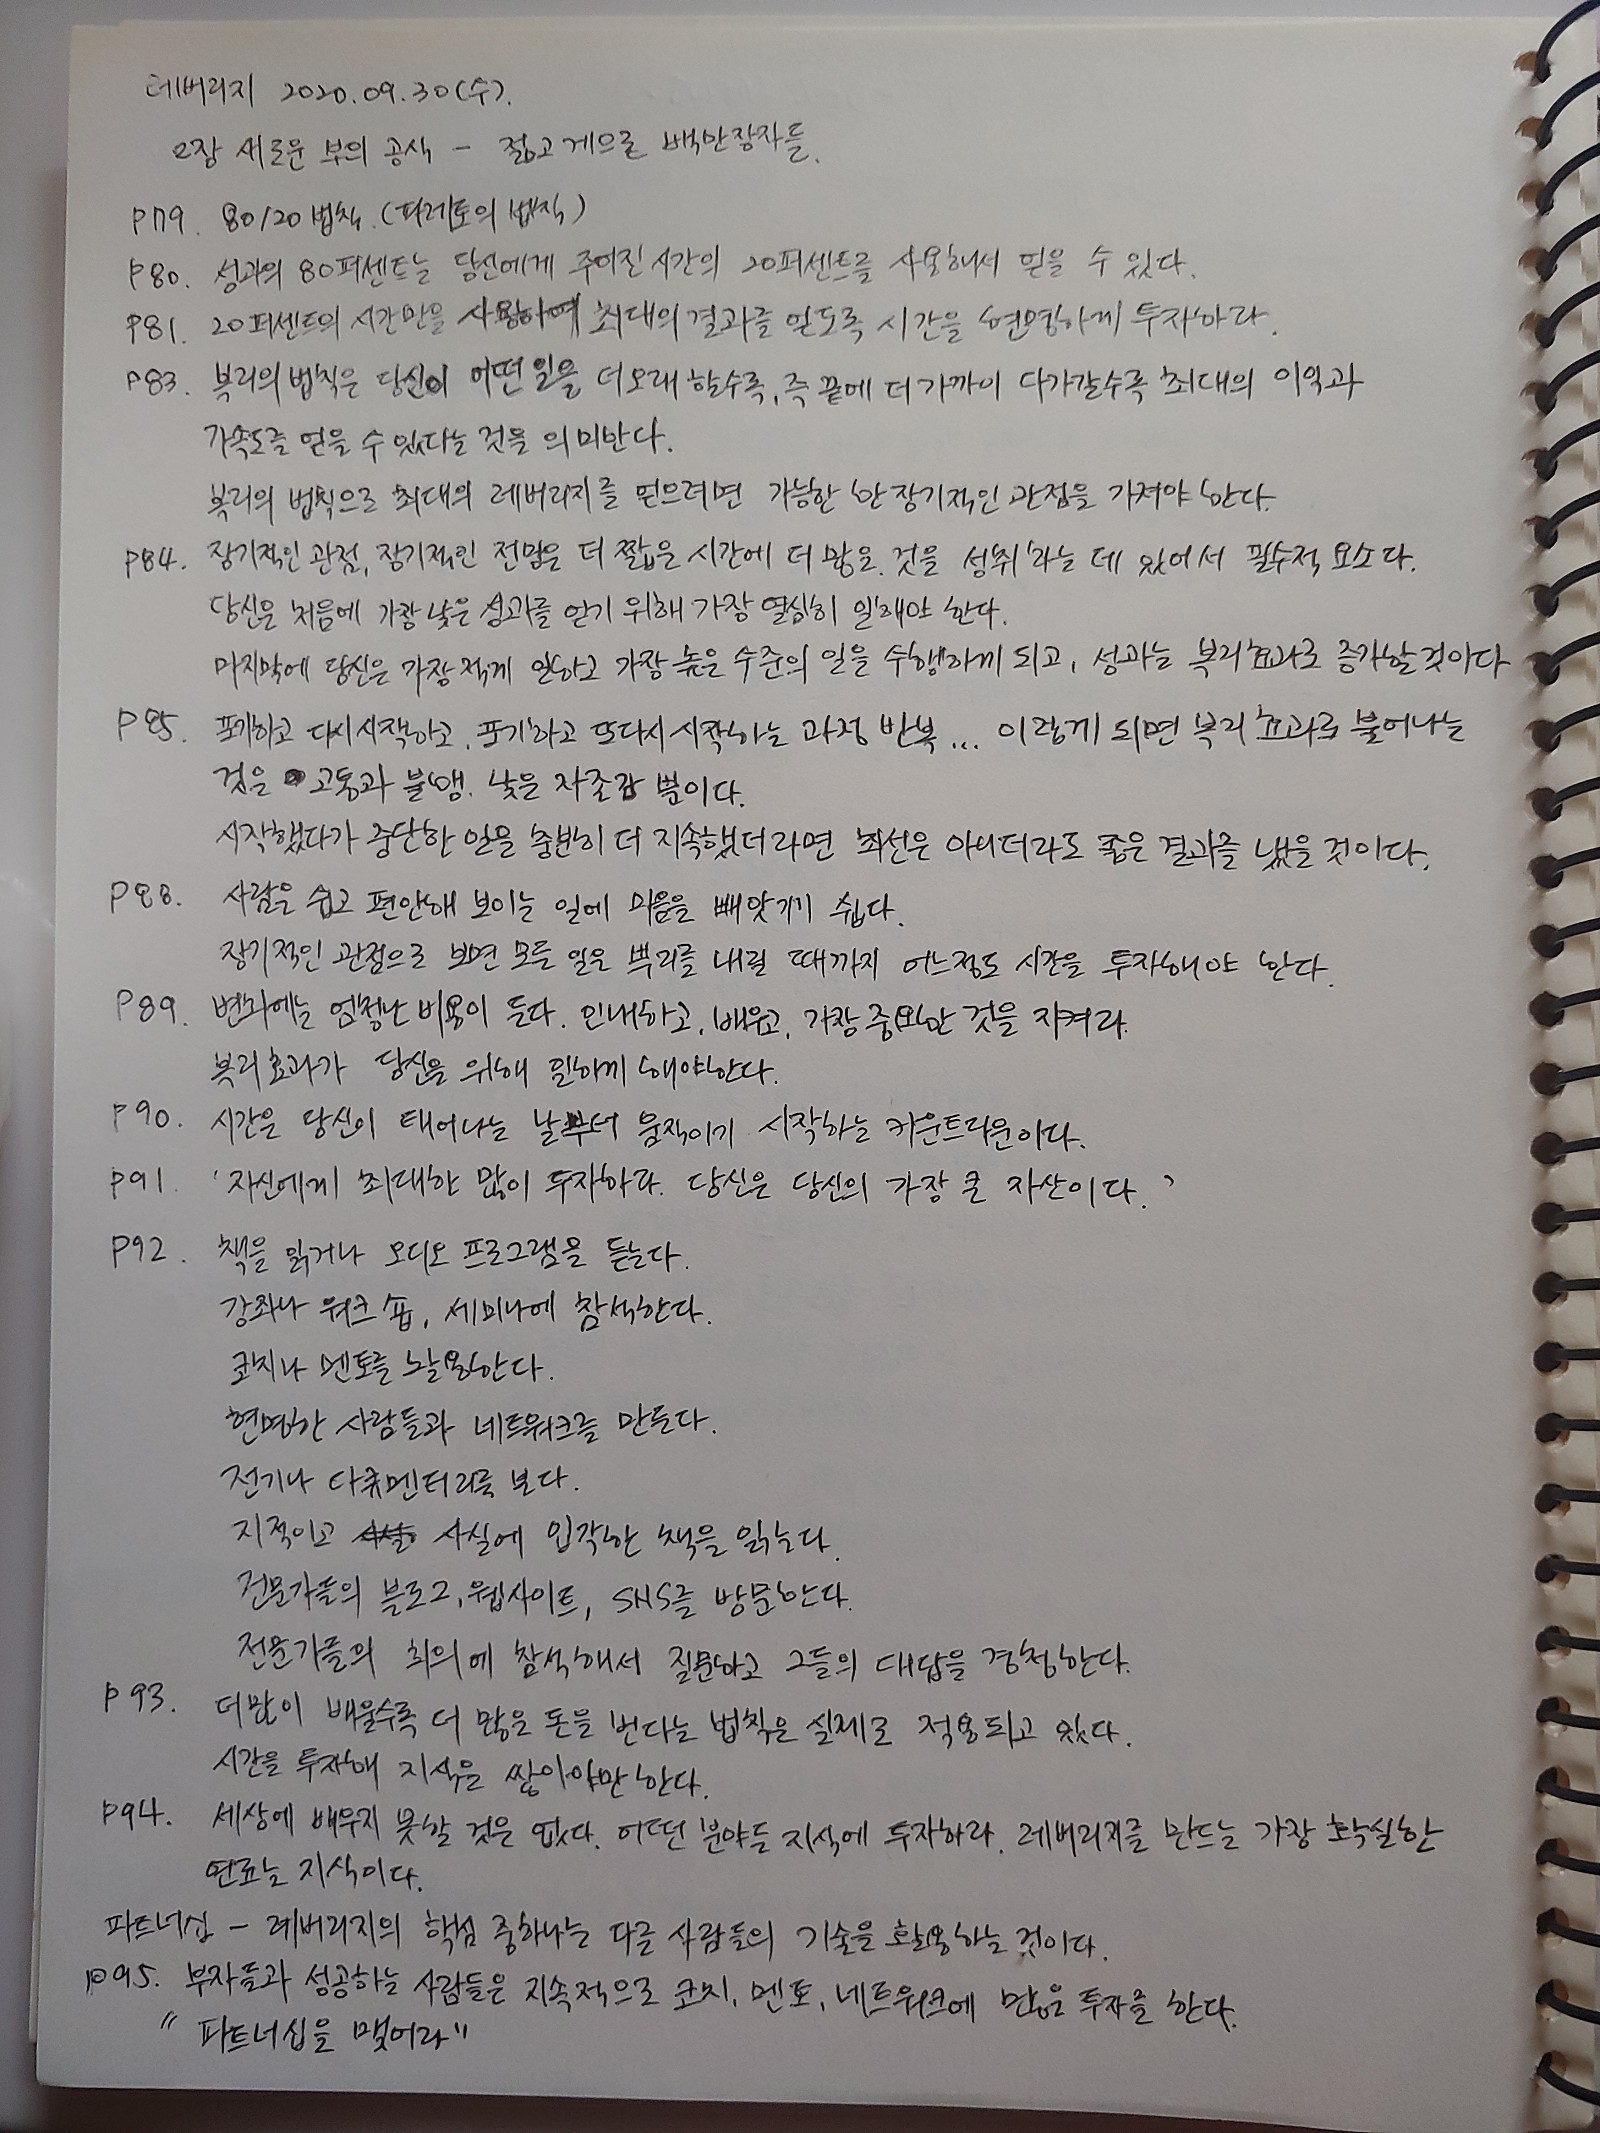 레버리지 2020.09.30(수).
2장 새로운 부의 공식 - 젊고 게으른 백만장자들.
P79. 80/20 법칙. (파레토의 법칙)
P80. 성과의 80퍼센트는 당신에게 주어진 시간의 20퍼센트를 사용해서 얻을 수 있다.
P81. 20퍼센트의 시간만을 사용하여 최대의 결과를 얻도록 시간을 현명하게 투자하라.
P83. 복리의 법칙은 당신이 어떤 일을 더 오래 할수록, 즉 끝에 더 가까이 다가갈수록 최대의 이익과
가속도를 얻을 수 있다는 것을 의미한다.
복리의 법칙으로 최대의 레버리지를 얻으려면 가능한 한 장기적인 관점을 가져야 한다.
P84. 장기적인 관점, 장기적인 전망은 더 짧은 시간에 더 많은 것을 성취하는 데 있어서 필수적 요소다.
당신은 처음에 가장 낮은 성과를 얻기 위해 가장 열심히 일해야 한다.
마지막에 당신은 가장 적게 일하고 가장 높은 수준의 일을 수행하게 되고, 성과는 복리효과로 증가할 것이다
P85. 포기하고 다시 시작하고, 포기하고 또다시 시작하는 과정 반복... 이렇게 되면 복리 효과로 불어나는
것은 고통과 불행. 낮은 자존감 뿐이다.
시작했다가 중단한 일을 충분히 더 지속했더라면 최선은 아니더라도 좋은 결과를 냈을 것이다.
P88. 사람은 쉽고 편안해 보이는 일에 마음을 빼앗기기 쉽다.
장기적인 관점으로 보면 모든 일은 뿌리를 내릴 때까지 어느정도 시간을 투자해야 한다.
P89. 변화에는 엄청난 비용이 든다. 인내하고, 배우고, 가장 중요한 것을 지켜라.
복리효과가 당신을 위해 일하게 해야한다.
P90. 시간은 당신이 태어나는 날부터 움직이기 시작하는 카운트다운이다.
P91. '자신에게 최대한 많이 투자하라. 당신은 당신의 가장 큰 자산이다.'
P92. 책을 읽거나 오디오 프로그램을 듣는다.
강좌나 워크숍, 세미나에 참석한다.
코치나 멘토를 활용한다.
현명한 사람들과 네트워크를 만든다.
전기나 다큐멘터리를 본다.
지적이고 사실에 입각한 책을 읽는다.
전문가들의 블로그, 웹사이트, SNS를 방문한다.
전문가들의 회의에 참석해서 질문하고 그들의 대답을 경청한다.
P93. 더 많이 배울수록 더 많은 돈을 번다는 법칙은 실제로 적용되고 있다.
시간을 투자해 지식을 쌓아야만 한다.
P94. 세상에 배우지 못할 것은 없다. 어떤 분야든 지식에 투자하라. 레버리지를 만드는 가장 확실한
연료는 지식이다.
파트너십 - 레버리지의 핵심 중하나는 다른 사람들의 기술을 활용하는 것이다.
P95. 부자들과 성공하는 사람들은 지속적으로 코치, 멘토, 네트워크에 많은 투자를 한다.
"파트너십을 맺어라"